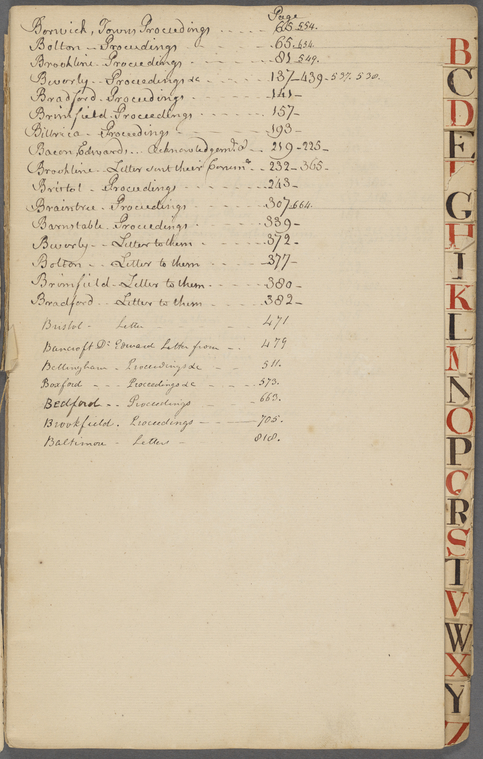 Page
Borwick, Towns Proceedings - - - - 65.554.
Bolton -- Proceedings - - - - - 65.454.
Brookline. Proceedings - - - - - 81.549.
Beverly - Proceedings &c - - - - 137-439-537.530.
Bradford. Proceedings - - - - - 141-
Brimfield. Proceedings - - - - - 157-
Billrica - Proceedings - - - - - 193-
Bacon Edwards... Acknowledgemt. &c - - 219-225-
Brookline - Letter sent their Commee. - - 232-365-
Bristol - Proceedings - - - - 243-
Braintree. Proceedings - - - - 307.664.
Barnstable. Proceedings - - - - - 339-
Beverly - - Letter to them - - - - - 372-
Bolton - - Letter to them - - - - 377-
Brimfield - Letter to them - - - - 380-
Bradford - - Letter to them - - - - 382-
Bristol - Letter - - - - - 471
Bancroft Dr. Edward Letter from - - 479
Bellingham - Proceedings &c - - 511.
Boxford - - - Proceedings &c - - 573.
Bedford - - Proceedings - 663.
Brookfield. Proceedings - - - 705.
Baltimore - Letters - 818.
B
C
D
E
G
H
I
K
L
M
N
O
P
Q
R
S
T
V
W
X
Y
Z